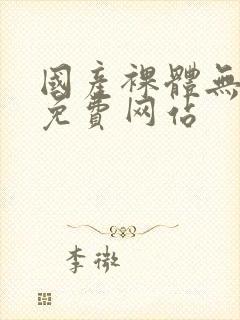 國產裸體無
免費网佔
李微